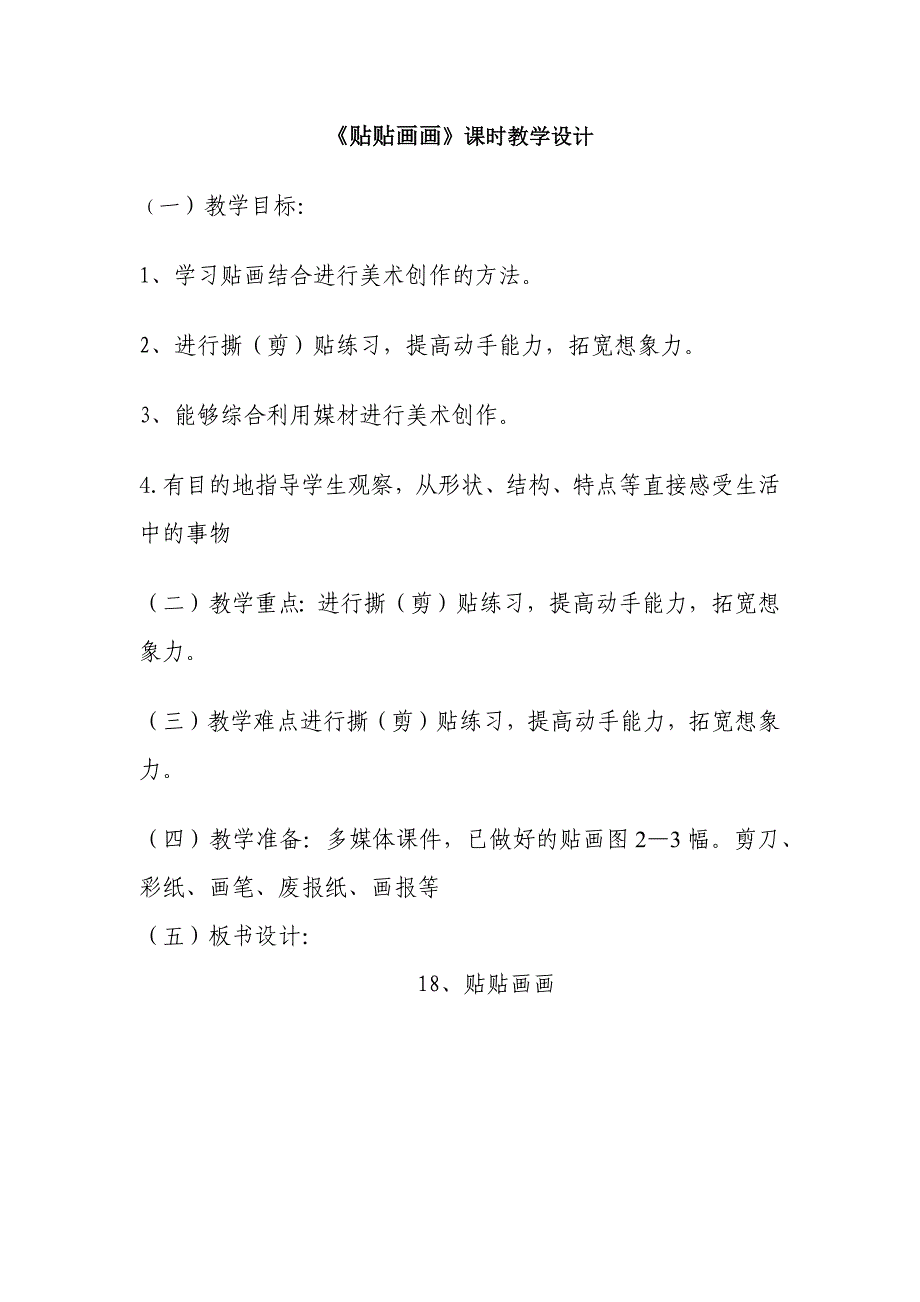 《贴贴画画》课时教学设计
（一）教学目标：
1、学习贴画结合进行美术创作的方法。
2、进行撕（剪）贴练习，提高动手能力，拓宽想象力。
3、能够综合利用媒材进行美术创作。
4.有目的地指导学生观察，从形状、结构、特点等直接感受生活
中的事物
（二）教学重点：进行撕（剪）贴练习，提高动手能力，拓宽想
象力。
（三）教学难点进行撕（剪）贴练习，提高动手能力，拓宽想象
力。
（四）教学准备：多媒体课件，已做好的贴画图2—3幅。剪刀、
彩纸、画笔、废报纸、画报等
（五）板书设计：
18、贴贴画画